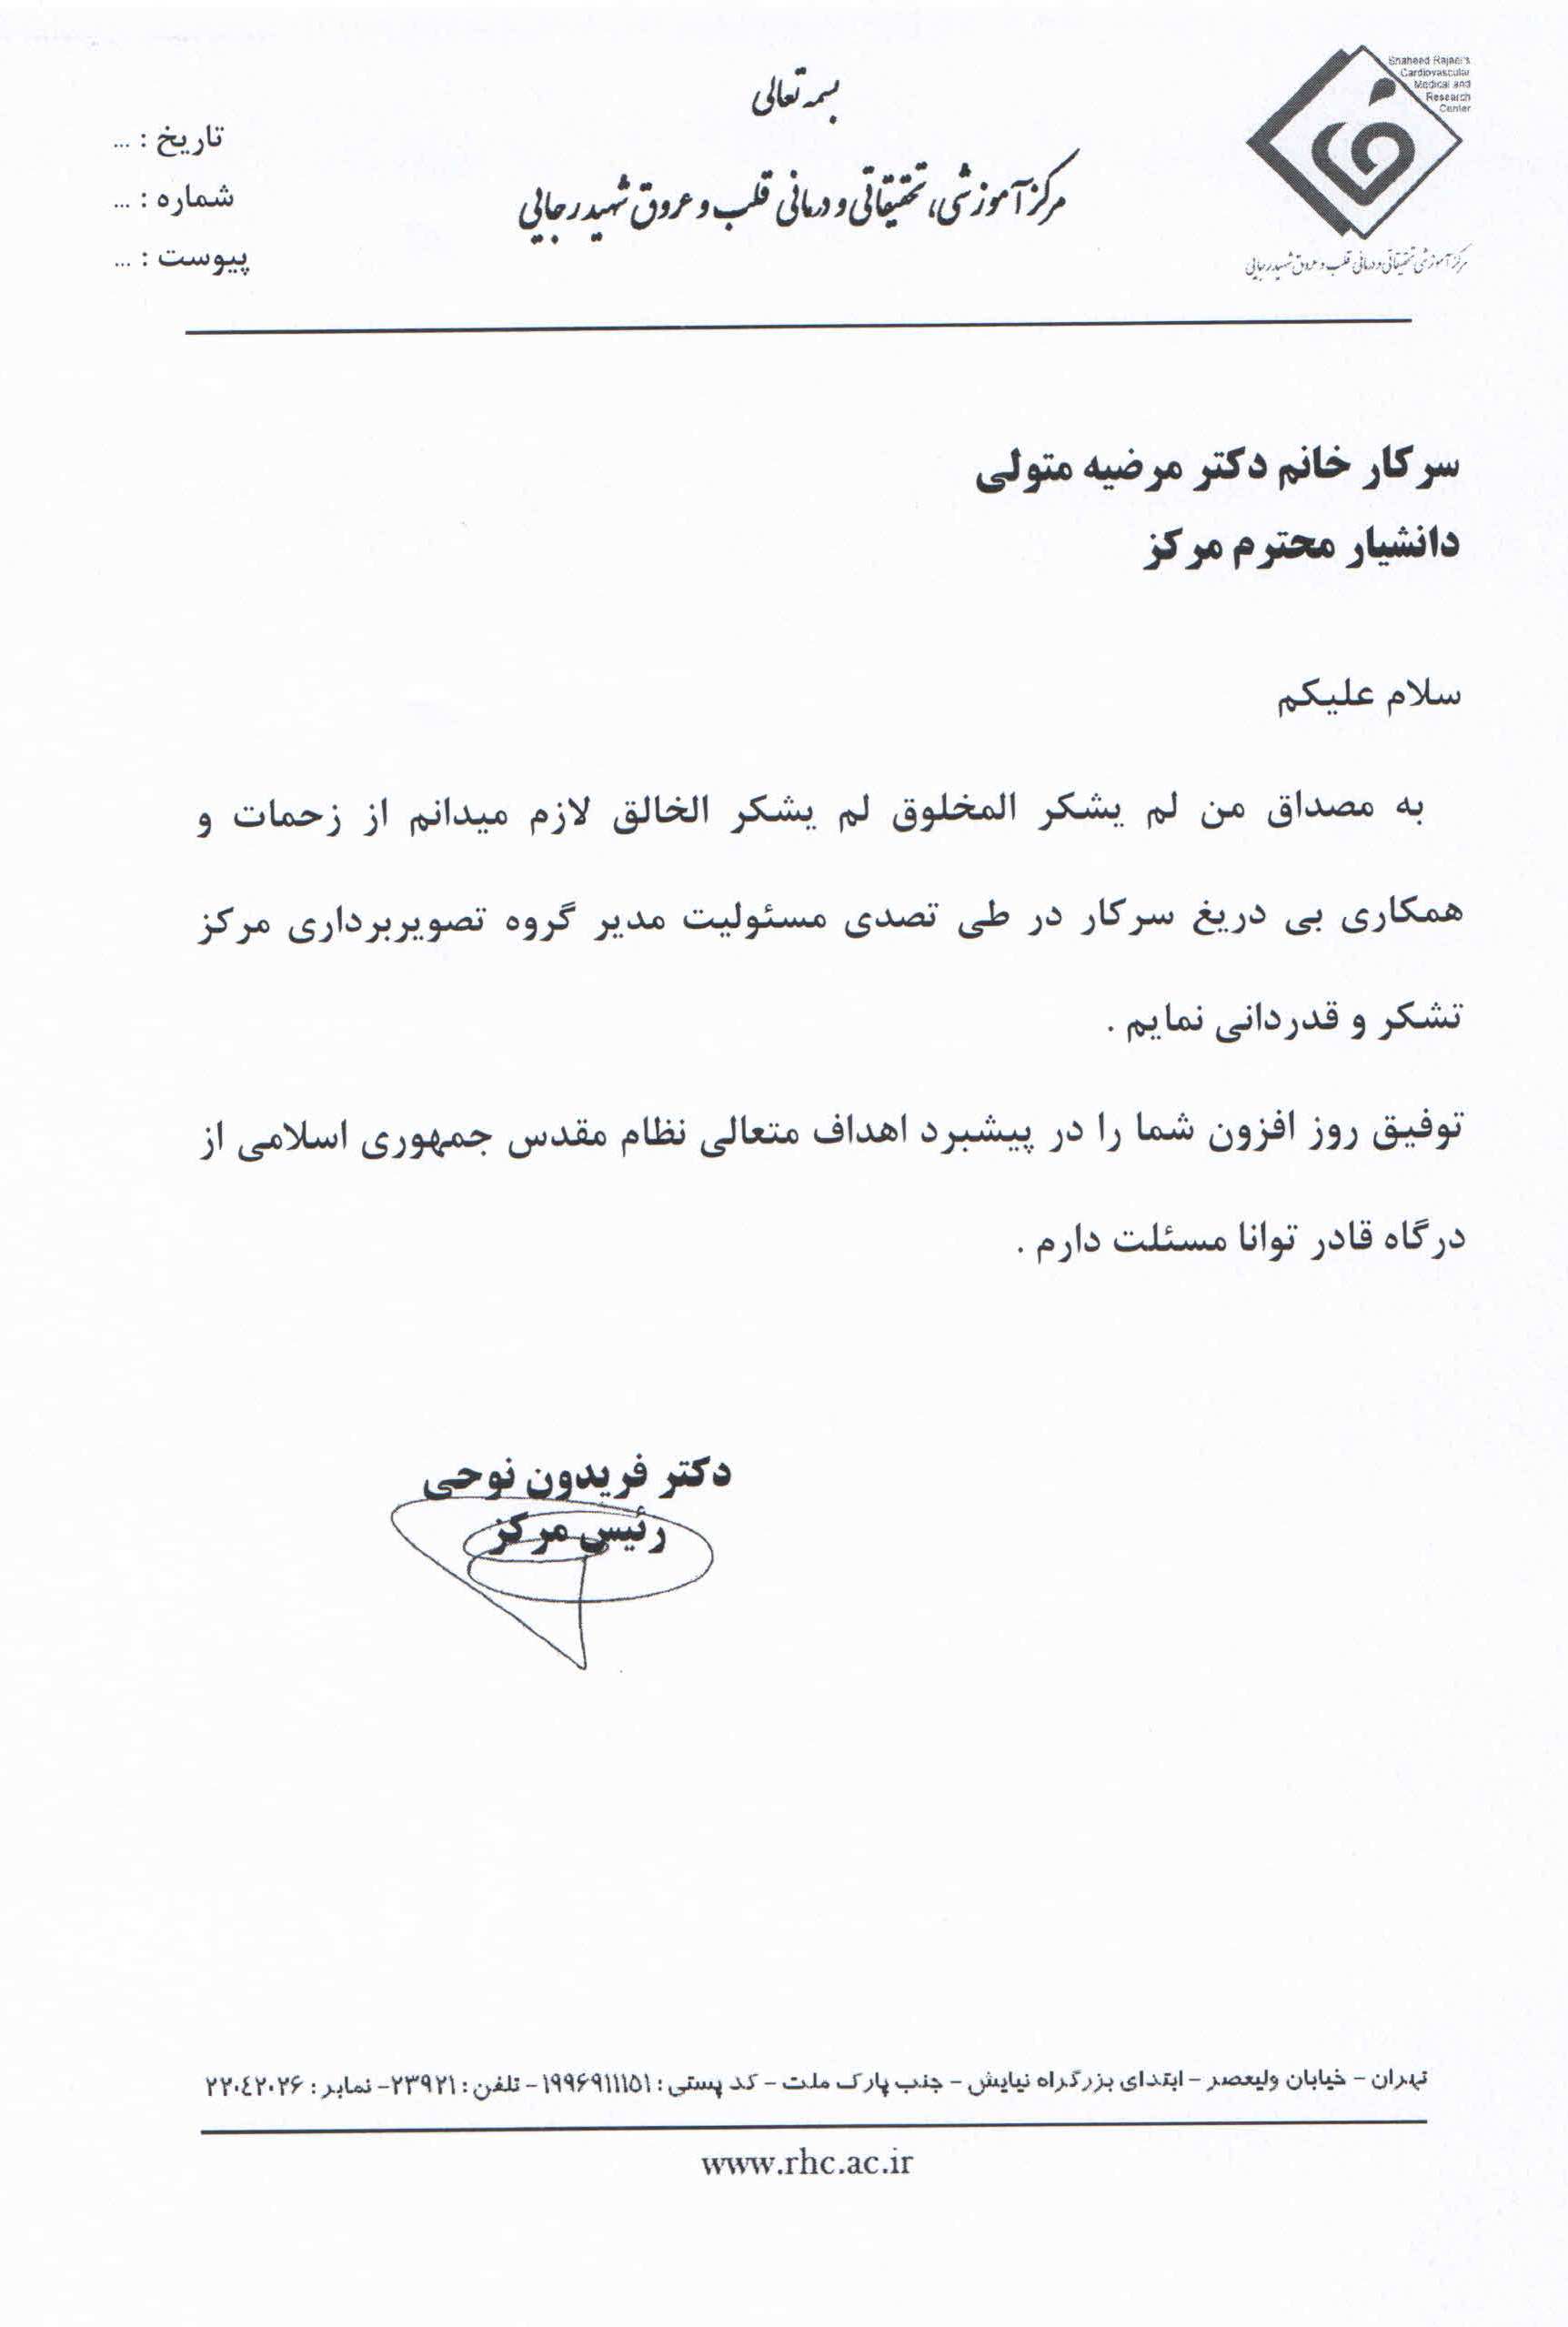 Shaheed Rajaei's
Cardiovascular
Medical and
Research
Center
مرکز آموزشی، تحقیقاتی و درمانی قلب و عروق شهید رجایی
بسمه تعالی
مرکز آموزشی، تحقیقاتی و درمانی قلب و عروق شهید رجایی
تاریخ : ...
شماره : ...
پیوست : ...
سرکار خانم دکتر مرضیه متولی
دانشیار محترم مرکز
سلام علیکم
به مصداق من لم یشکر المخلوق لم یشکر الخالق لازم میدانم از زحمات و
همکاری بی دریغ سرکار در طی تصدی مسئولیت مدیر گروه تصویربرداری مرکز
تشکر و قدردانی نمایم .
توفیق روز افزون شما را در پیشبرد اهداف متعالی نظام مقدس جمهوری اسلامی از
درگاه قادر توانا مسئلت دارم .
دکتر فریدون نوحی
رئیس مرکز
تهران - خیابان ولیعصر - ابتدای بزرگراه نیایش - جنب پارک ملت - کد پستی : ۱۹۹۶۹۱۱۱۵۱ - تلفن : ۲۳۹۲۱- نمابر : ۲۲۰٤۲۰۲۶
www.rhc.ac.ir